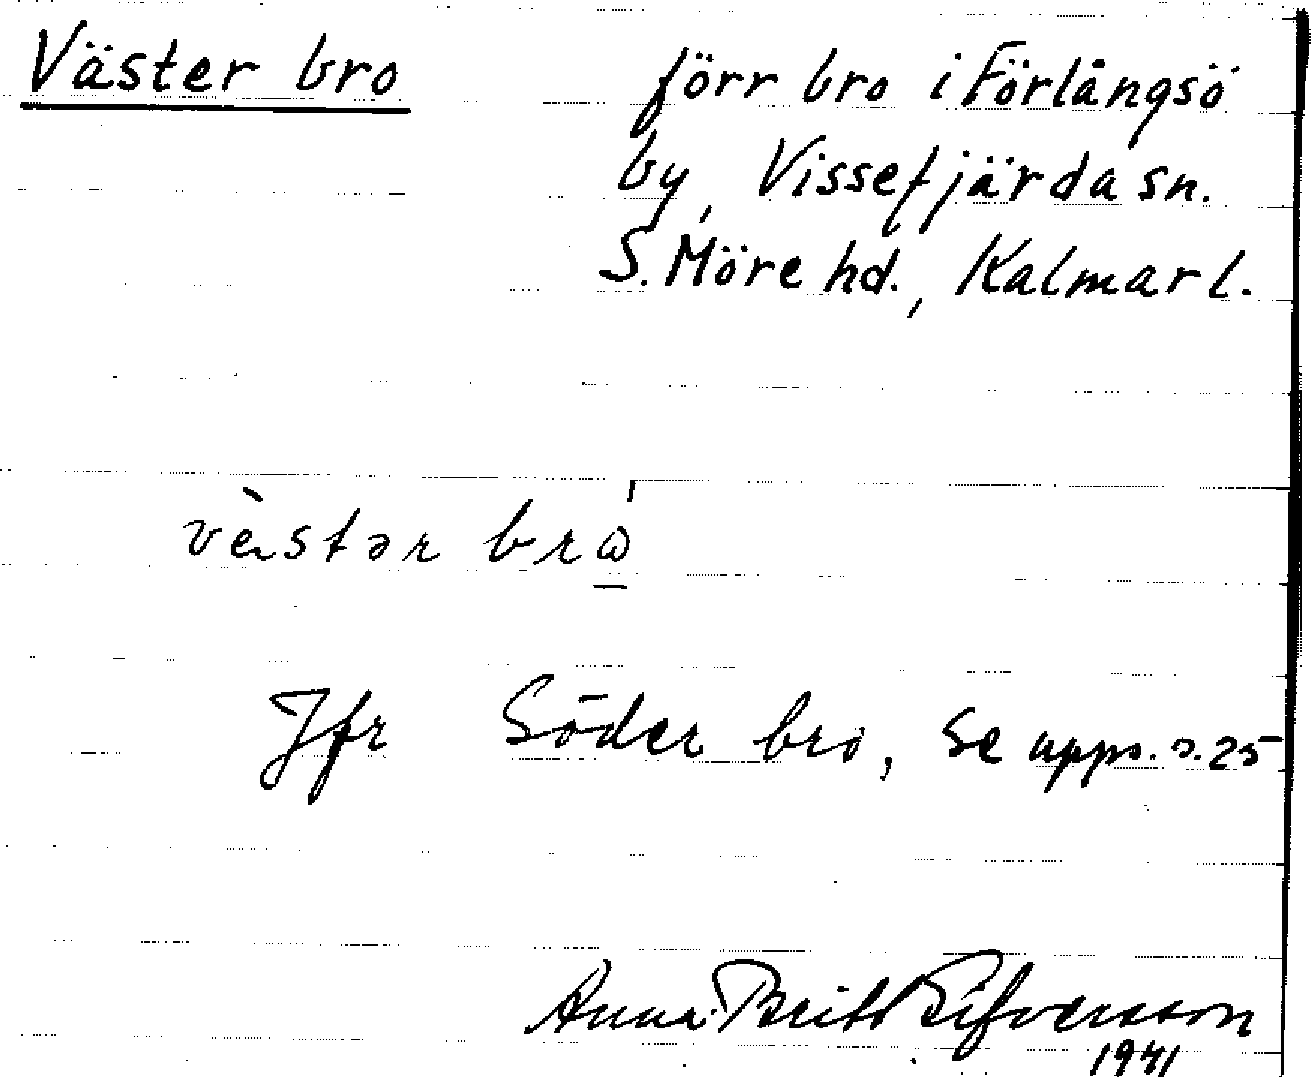 Väster bro förr bro i Förlångsö
by, Vissefjärda sn.
S. Möre hd., Kalmar l.
västər bro
Jfr Söder bro, se upps. s. 25
Anna-Britt Sifversson
1941